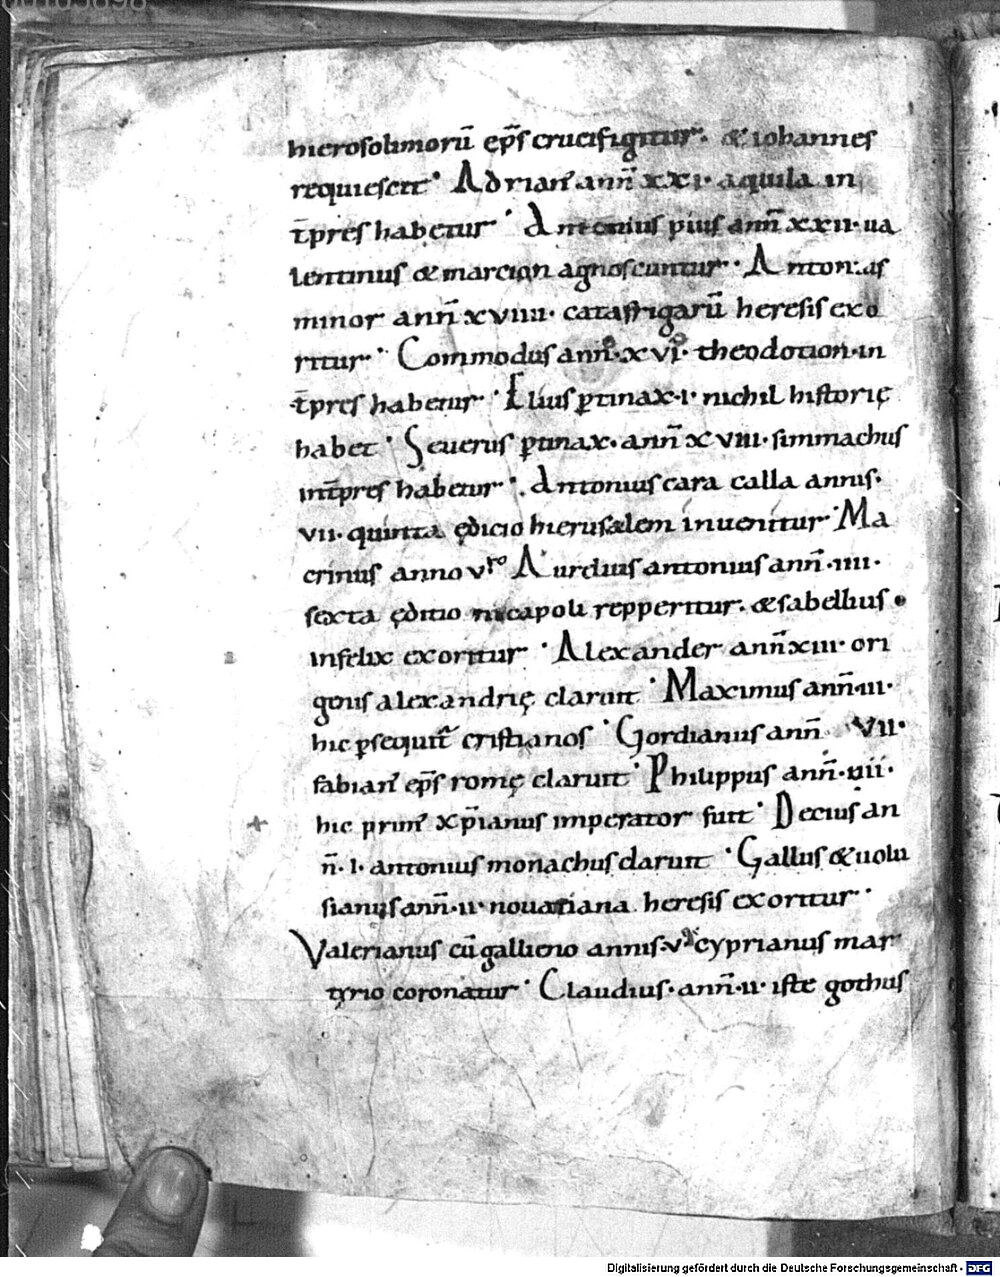 hierosolimorū ep̄s crucifigitur. & iohannes
requiescit. Adrian᾽ ann̄ xxi. aquila in
t̄pres habetur. Antonius pius ann̄ xxii. ua
lentinus & marcion agnoscuntur. Antonias
minor ann̄ xviiii. catafrigarū heresis exo
ritur. Commodus ann̄. xvi. theodotion. in
t̄pres habetur. Elius ꝑtinax. i. nichil historię
habet. Seuerus ꝑtinax. ann̄ xviii. simmachus
int̄pres habetur. Antonius cara calla annis.
vii. quinta ędicio hierusalem inuenitur. Ma
crinus anno vͬͦ Aurelius antonius ann̄. iiii.
sexta ęditio nicapoli repperitur. & sabellius
infelix exoritur. Alexander ann̄ xiii. ori
genis alexandrię claruit. Maximus ann̄. iii.
hic ꝑsequit᷑ cristianos. Gordianus ann̄ VII.
fabian᾽ ep̄s romę claruit. Philippus ann̄. vii.
hic prim᾽ xp̄ianus imperator fuit. Decius an
n̄. i. antonius monachus claruit. Gallus & uolu
sianus ann̄. ii. nouatiana heresis exoritur.
Valerianus cū gallieno annis. cyprianus mar
tyrio coronatur. Claudius. ann̄. ii. iste gothus
Digitalisierung gefördert durch die Deutsche Forschungsgemeinschaft - DFG